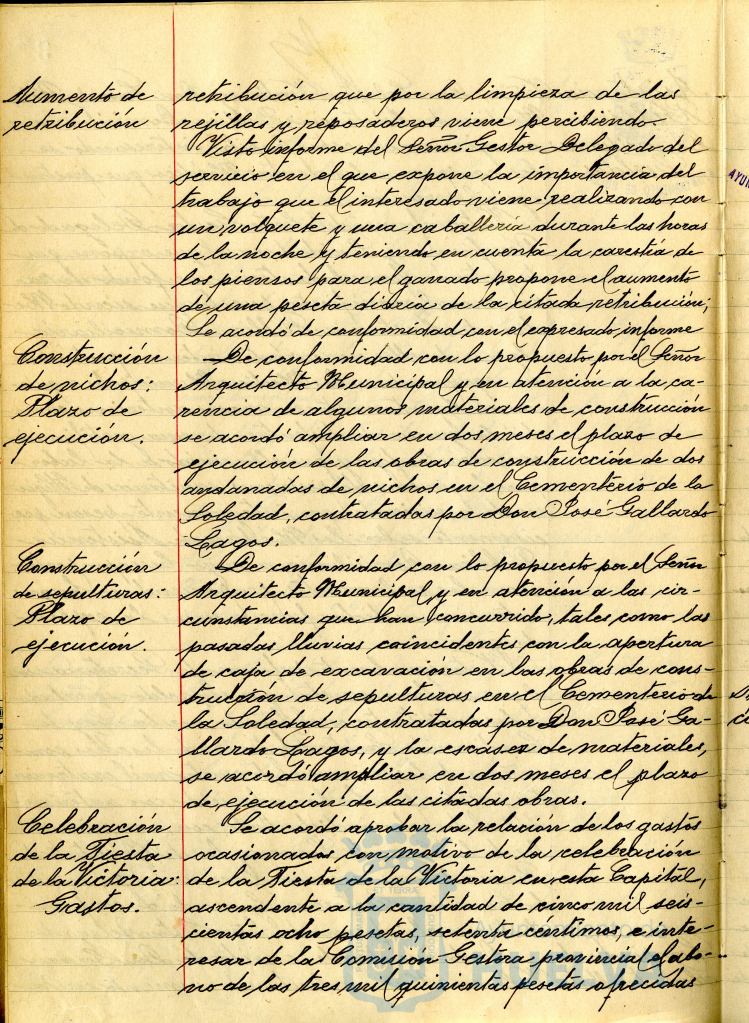 Aumento de
retribución
retribución que por la limpieza de las
rejillas y reposaderos viene percibiendo.
Visto informe del Señor Gestor Delegado del
servicio en el que expone la importancia del
trabajo que el interesado viene realizando con
un volquete y una caballería durante las horas
de la noche y teniendo en cuenta la carestía de
los piensos para el ganado propone el aumento
de una peseta diaria de la citada retribución;
Se acordó de conformidad con el expresado informe
Construcción
de nichos:
Plazo de
ejecución.
De conformidad con lo propuesto por el Señor
Arquitecto Municipal y en atención a la ca-
rencia de algunos materiales de construcción
se acordó ampliar en dos meses el plazo de
ejecución de las obras de construcción de dos
andanadas de nichos en el Cementerio de la
Soledad, contratadas por Don José Gallardo
Lagos.
Construcción
de sepulturas:
Plazo de
ejecución.
De conformidad con lo propuesto por el Señor
Arquitecto Municipal, y en atención a las cir-
cunstancias que han concurrido, tales como las
pasadas lluvias coincidentes con la apertura
de caja de excavación en las obras de cons-
trucción de sepulturas en el Cementerio de
la Soledad, contratadas por Don José Ga-
llardo Lagos, y la escasez de materiales,
se acordó ampliar en dos meses el plazo
de ejecución de las citadas obras.
Celebración
de la Fiesta
de la Victoria:
Gastos.
Se acordó aprobar la relación de los gastos
ocasionados con motivo de la celebración
de la Fiesta de la Victoria en esta Capital,
ascendente a la cantidad de cinco mil seis-
cientas ocho pesetas, setenta céntimos, e inte-
resar de la Comisión Gestora provincial el abo-
no de las tres mil quinientas pesetas ofrecidas
HUELVA